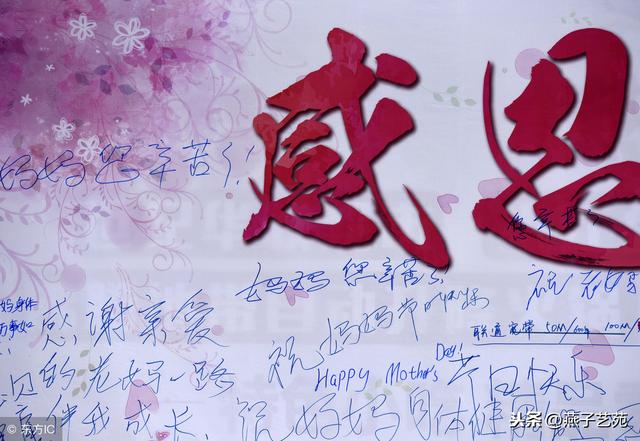 感恩
妈妈您辛苦了!
您辛苦了
妈妈 您辛苦了!
祝老妈
妈身体
万事如
感谢亲爱
的老妈一路
伴我成长
祝妈妈节日快乐
Happy Mother's Day!
节日快乐
联通宽带 50M/ 100M/
祝妈妈身体健康
© 东方IC
头条@燕子艺苑